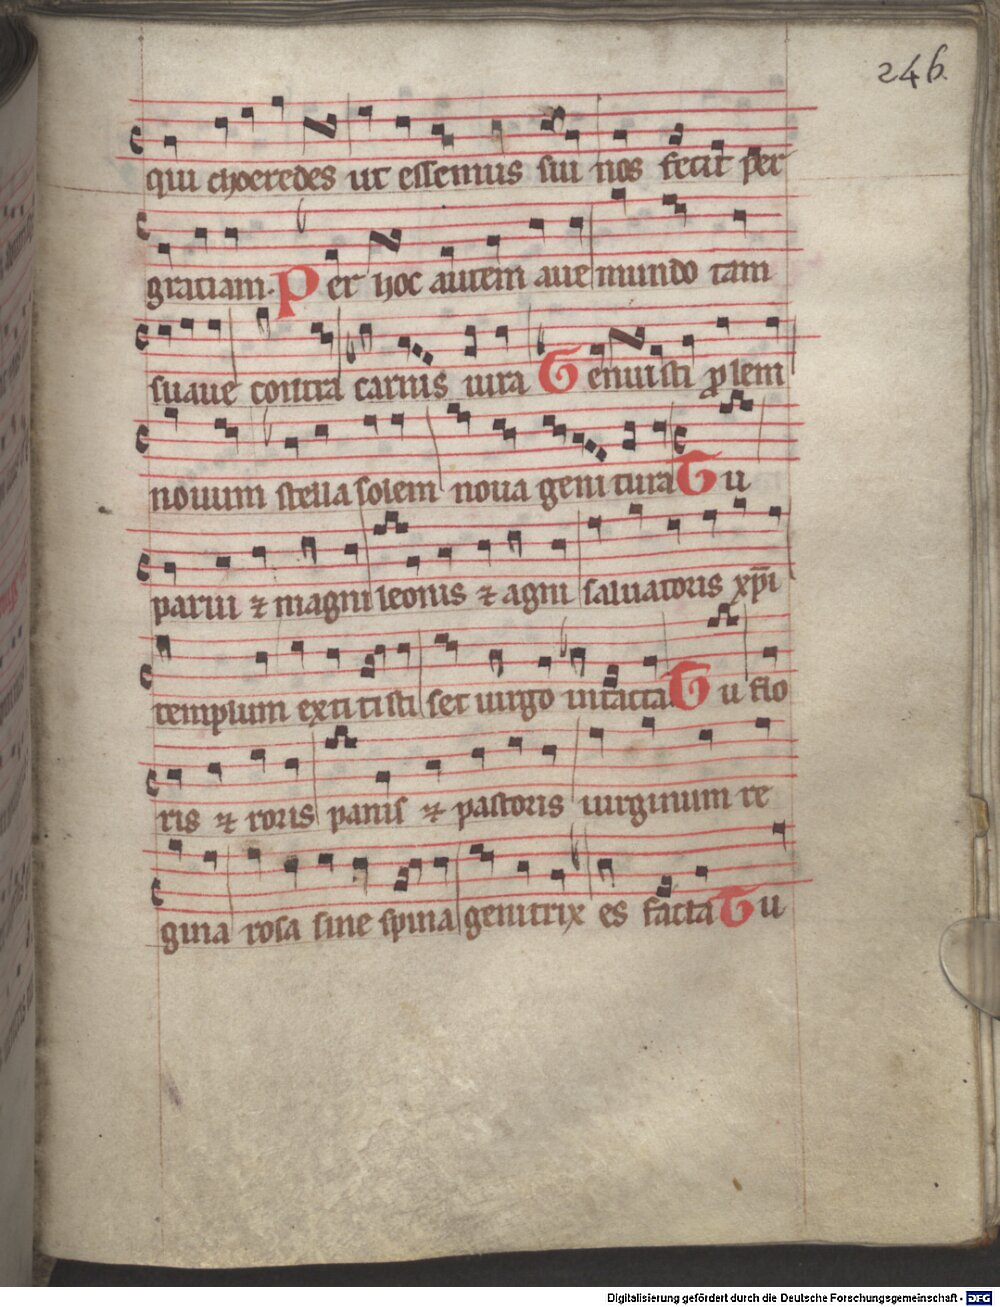 246.
qui choeredes ut essemus sui nos fecit per
graciam. Per hoc autem aue mundo tam
suaue contra carnis iura Genuisti ꝓlem
nouum stella solem noua genitura Tu
parui ⁊ magni leonis ⁊ agni saluatoris xp̄i
templum extitisti set uirgo intacta Tu flo
ris ⁊ roris panis ⁊ pastoris uirginum re
gina rosa sine spina genitrix es facta Tu
Digitalisierung gefördert durch die Deutsche Forschungsgemeinschaft - DFG